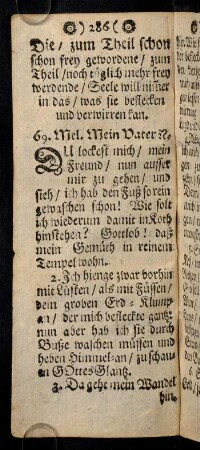 ) 286 (
Die / zum Theil schon
schon frey gewordene / zum
Theil / noch täglich mehr frey
werdende / Seele will nim̃er
in das / was sie beflecken
und verwirren kan.
69. Mel. Mein Vater ꝛc.
DU lockest mich / mein
Freund / nun ausser
mir zu gehen / und
sieh / ich hab den Fuß so rein
gewaschen schon! Wie solt
ich wiederum damit in Koth
hinstehen? Gottlob! daß
mein Gemüth in reinem
Tempel wohn.
2. Ich hienge zwar vorhin
mit Lüsten / als mit Füssen /
dem groben Erd-Klump-
an / der mich befleckte gantz:
nun aber hab ich sie durch
Buße waschen müssen und
heben Himmel-an / zu schau-
en GOttes Glantz.
3. Da geht mein Wandel
hin,